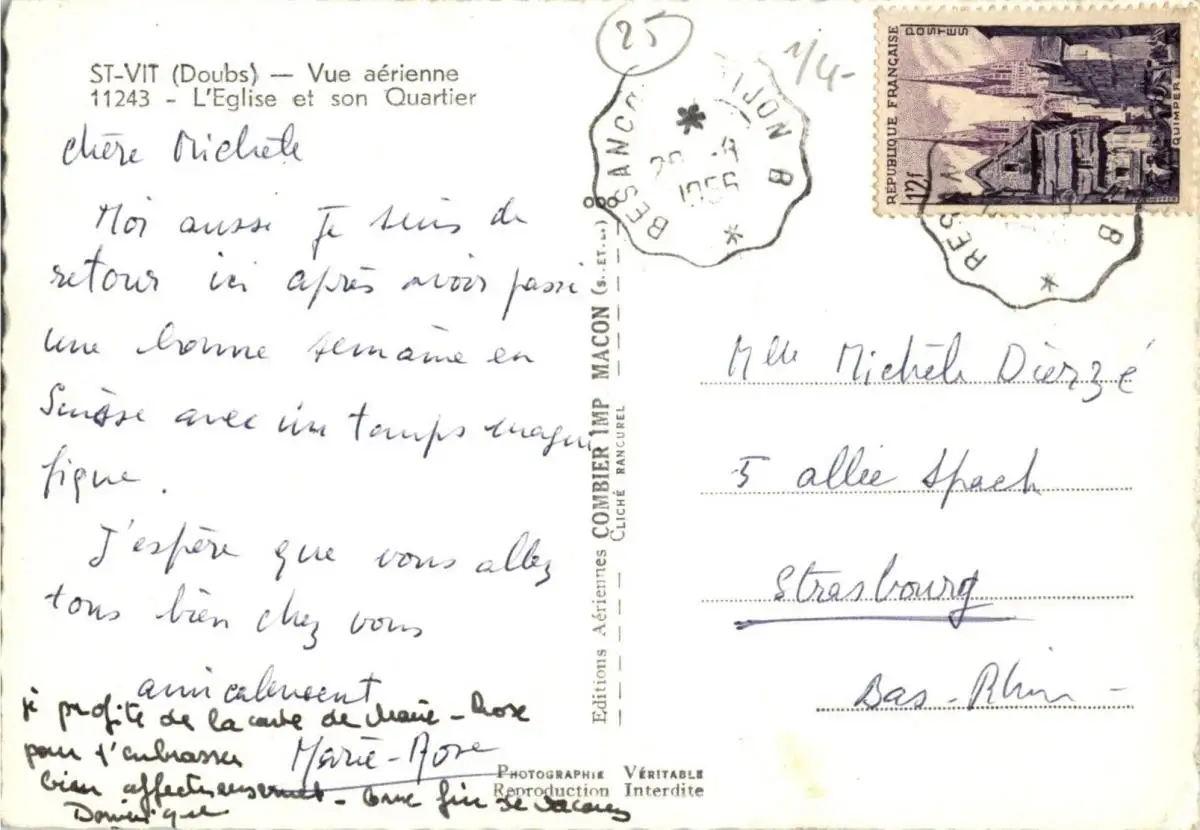 ST-VIT (Doubs) — Vue aérienne
11243 - L'Eglise et son Quartier
chère Michèle
Moi aussi je suis de
retour ici après avoir passé
une bonne semaine en
Suisse avec un temps magni
fique.
J'espère que vous allez
tous bien chez vous
amicalement
Marie-Rose
je profite de la carte de Marie-Rose
pour t'embrasser
bien affectueusement - Bonne fin de vacances
Dominique
Editions Aériennes COMBIER IMP MACON (S.-ET-L.)
CLICHÉ RANCUREL
PHOTOGRAPHIE VÉRITABLE
Reproduction Interdite
25
1/4-
BESANCON B
1956
RÉPUBLIQUE FRANÇAISE
POSTES
12f
QUIMPER
BESAN B
Mlle Michèle Dierzé
5 allée Spach
Strasbourg
Bas-Rhin -